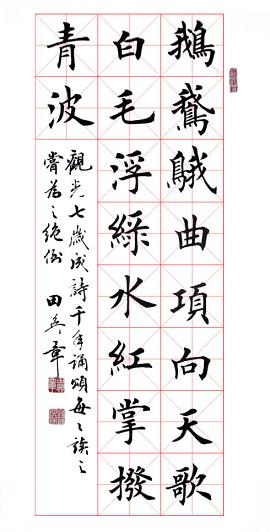 鵝鵞䳘曲項向天歌
白毛浮緑水紅掌撥
青波
觀光七歲成詩千年誦頌每々讀之
嘗為之絕倒 田英章